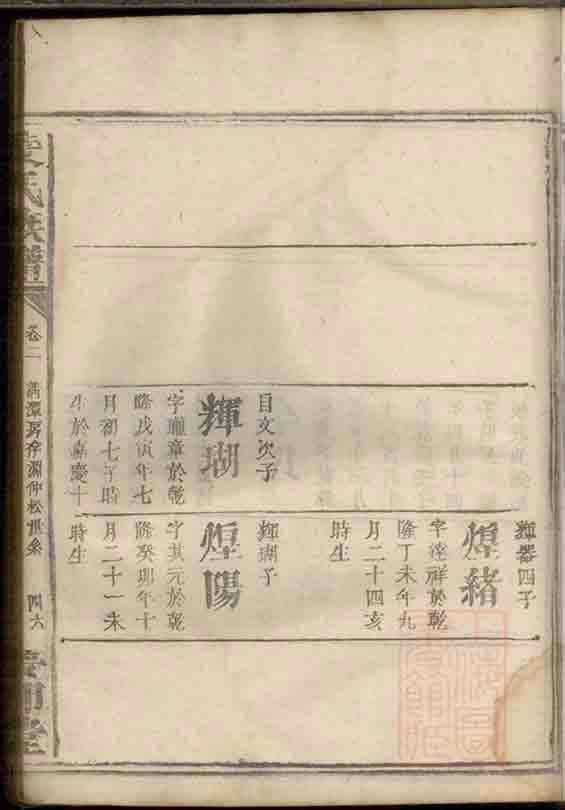 輝器四子
煌緒
字達祥於乾
隆丁未年九
月二十四亥
時生
目文次子
輝瑚
字璉章於乾
隆戊寅年七
月初七午時
生於嘉慶十
輝瑚子
煌陽
字其元於乾
隆癸卯年十
月二十一未
時生
氏族譜
卷二
仲松世系
四六